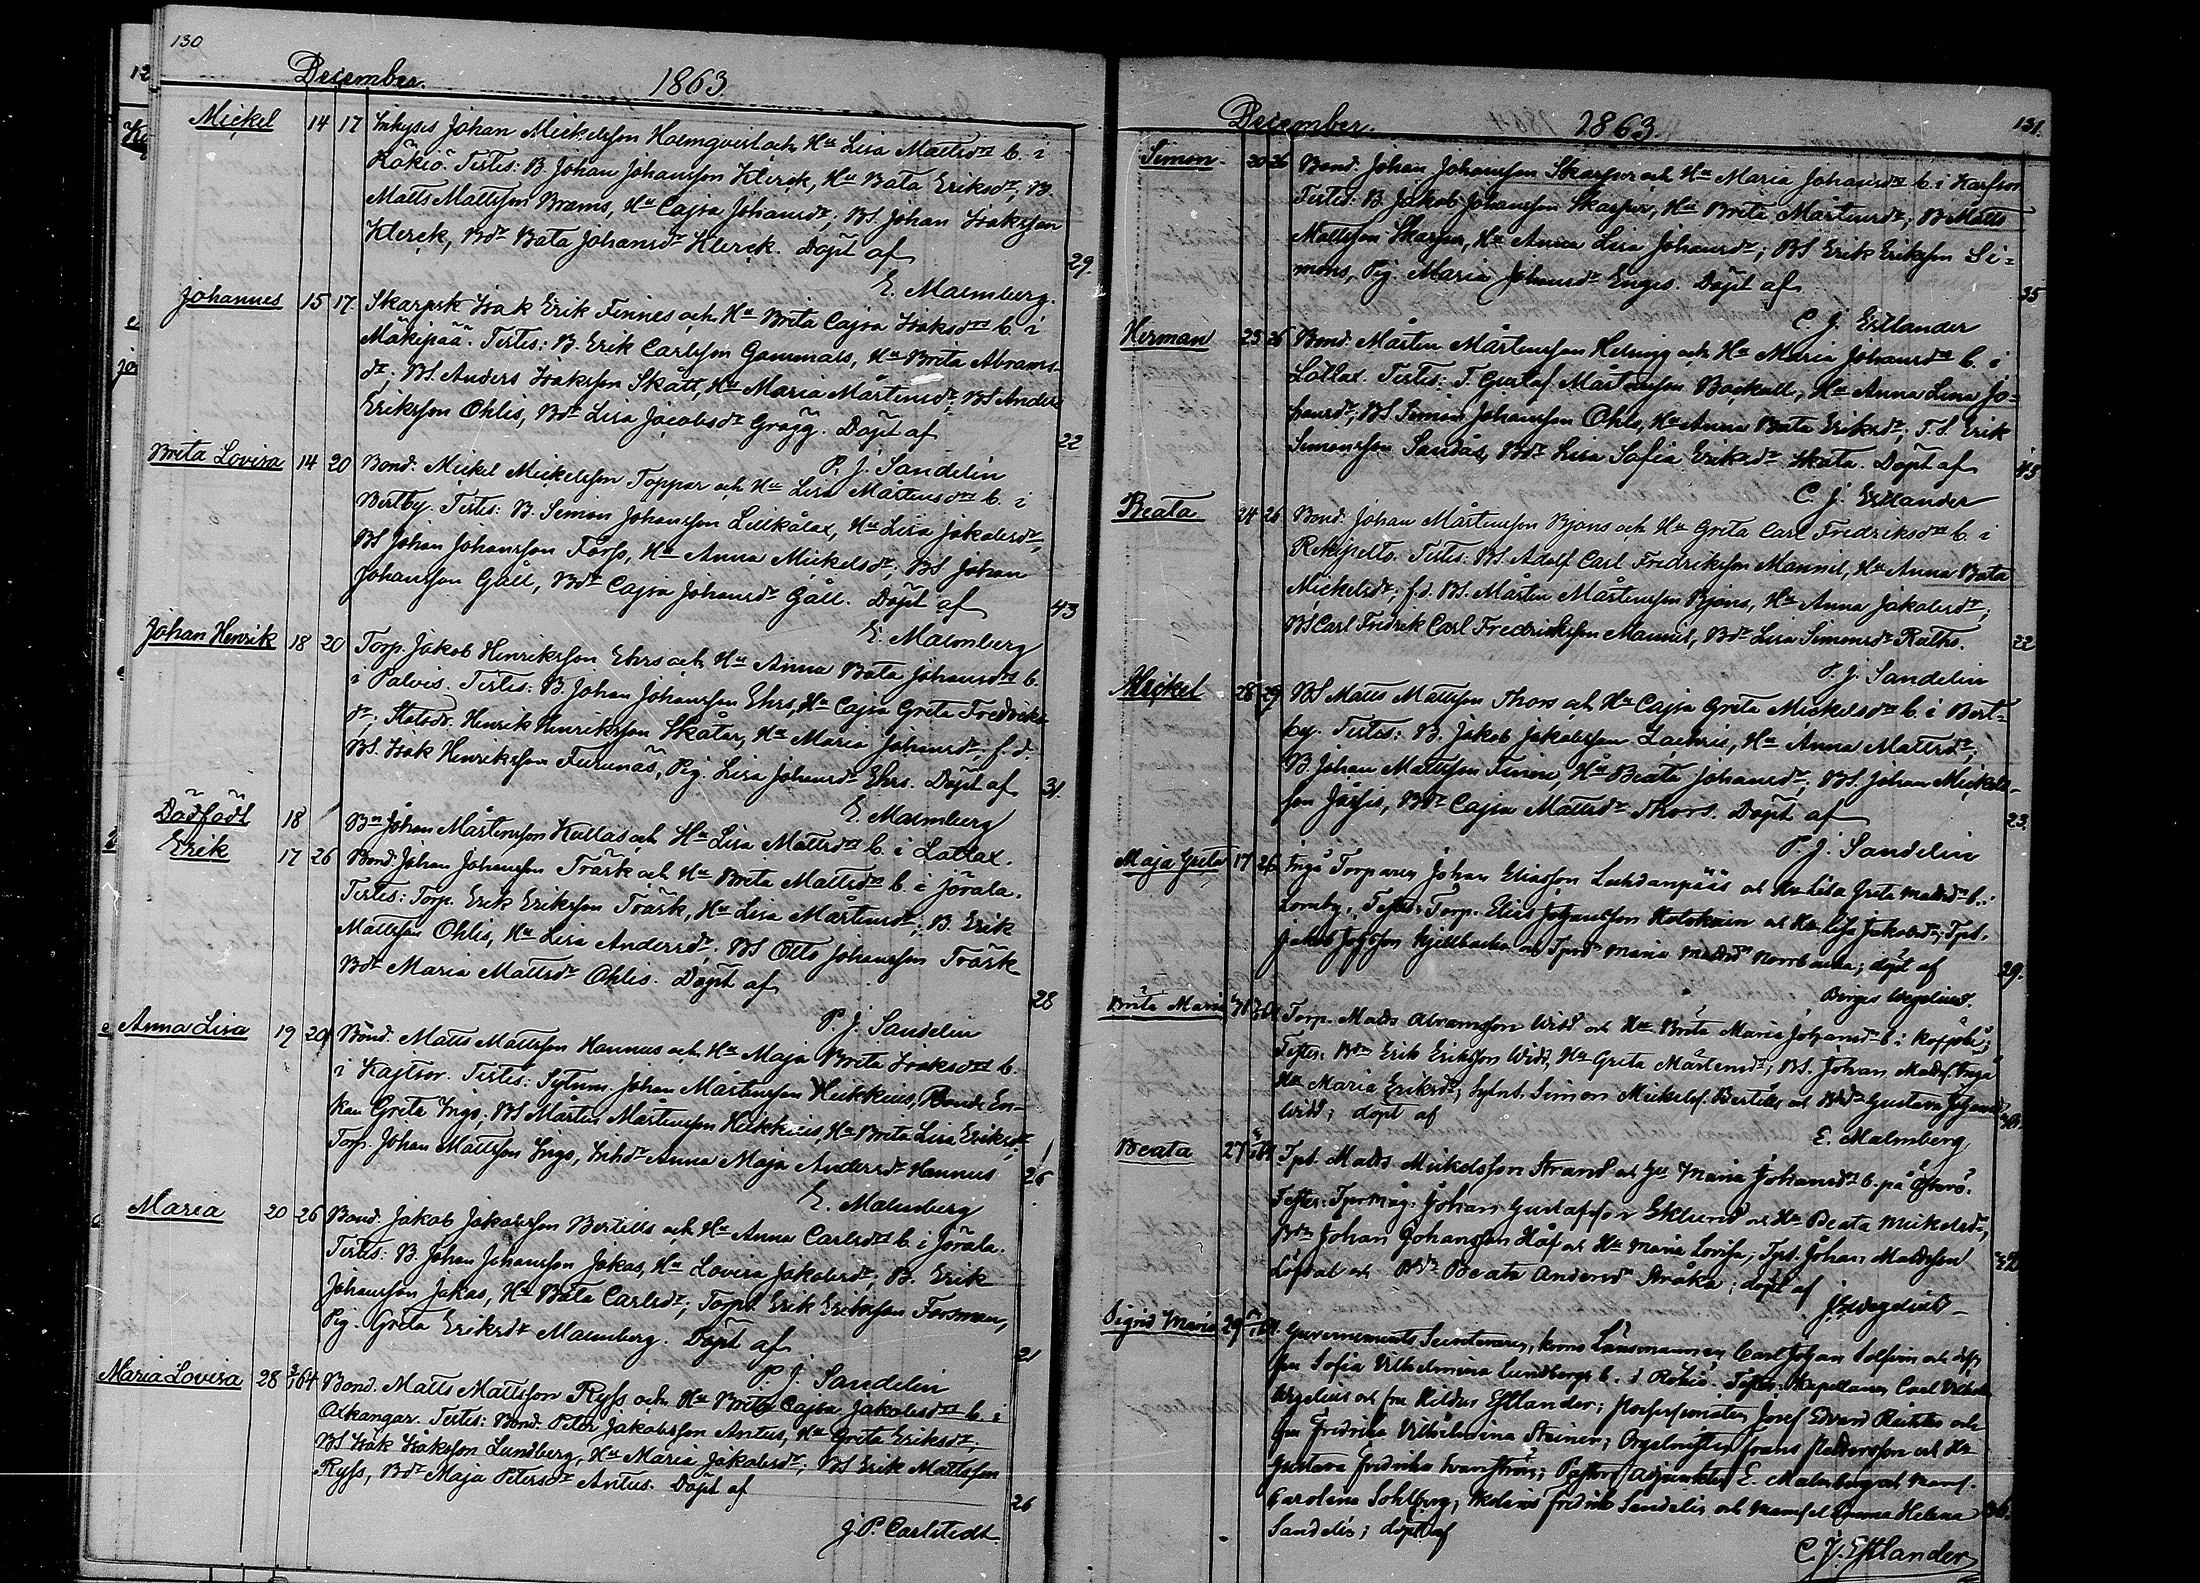 130
December. 1863.
Mickel 14 17 Inhyses Johan Mickelsson Holmqvist och Hu Lisa Mattsdr b. i
Kökiö. Testes: B. Johan Johansson Klerck, Hu Bata Eriksdr; B.
Matts Mattsson Brams, Hu Cajsa Johansdr; BS. Johan Isaksson
Klerck, Bdr Bata Johansdr Klerck. Döpt af 29.
E. Malmberg.
Johannes 15 17. Isak Erik Finnes och Hu Brita Cajsa Isaksdr b. i
Mäkipää. Testes: B. Erik Carlsson Gammals, Hu Brita Abrams-
dr; BS. Anders Isaksson Skått, Hu Maria Mårtensdr; BS Anders
Eriksson Ohlis, Bdr Lisa Jacobsdr Grägg. Döpt af 22
P. J. Sandelin
Brita Lovisa 14 20 Bond. Mickel Mickelsson Toppar och Hu Lisa Mårtensdr b. i
Bertby. Testes: B. Simon Johansson Lillkålax, Hu Lisa Jakobsdr;
BS Johan Johansson Forss, Hu Anna Mickelsdr; BS Johan
Johansson Gåll, Bdr Cajsa Johansdr Gåll. Döpt af 43
E. Malmberg
Johan Henrik 18 20 Torp. Jakob Henriksson Ehrs och Hu Anna Bata Johansdr b.
i Palvis. Testes: B. Johan Johansson Ehrs, Hu Cajsa Greta Fredriks-
dr; Henrik Henriksson Skåtar, Hu Maria Johansdr; f.d.
BS. Isak Henriksson Furunäs, Pig. Lisa Johansdr Ehrs. Döpt af 31.
E. Malmberg
Dödfödt 18 Bn Johan Mårtensson Kullas och Hu Lisa Mattsdr b. i Lotlax.
Erik 17 26 Bond. Johan Johansson Träsk och Hu Brita Mattsdr b. i Jörala.
Testes: Torp. Erik Eriksson Träsk, Hu Lisa Mårtensdr; B. Erik
Mattsson Ohlis, Hu Lisa Andersdr; BS Otto Johansson Träsk
Bdr Maria Mattsdr Ohlis. Döpt af 28
P. J. Sandelin
Anna Lisa 19 20 Bond. Matts Mattsson Hannus och Hu Maja Brita Isaksdr b.
i Kajtsor. Testes: Johan Mårtensson Heikkius, Bonde En-
kan Greta Ingo; BS Mårten Mårtensson Heikkius, Hu Brita Lisa Eriksdr;
Torp. Johan Mattsson Ingo, Inhdr Anna Maja Andersdr Hannus 26
E. Malmberg
Maria 20 26 Bond. Jakob Jakobsson Bertills och Hu Anna Carlsdr b. i Jörala.
Testes: B. Johan Johansson Jakas, Hu Lovisa Jakobsdr; B. Erik
Johansson Jakas, Hu Bata Carlsdr; Torp. Erik Eriksson Forsman,
Pig. Greta Eriksdr Malmberg. Döpt af 21
P. J. Sandelin
Maria Lovisa 28 3/1 64 Bond. Matts Mattsson Ryss och Hu Brita Cajsa Jakobsdr b. i
Oxkangar. Testes: Bond. Peter Jakobsson Antus, Hu Greta Eriksdr;
BS Isak Isaksson Lundberg, Hu Maria Jakobsdr; BS Erik Mattsson
Ryss, Bdr Maja Petersdr Antus. Döpt af 26
J. P. Carlstedt.
December. 1863. 131.
Simon. 20 26 Bond. Johan Johansson Skarpar och Hu Maria Johansdr b. i Karfsor
Testes: B. Jakob Johansson Skarpar, Hu Brita Mårtensdr; B Matts
Mattsson Skarpar, Hu Anna Lisa Johansdr; BS Erik Eriksson Si-
mons, Pig. Maria Johansdr Enges. Döpt af 35
C. J. Estlander
Herman 23 26 Bond. Mårten Mårtensson Helsing och Hu Maria Johansdr b. i
Lotlax. Testes: T. Gustaf Mårtensson Backull, Hu Anna Lisa Jo-
hansdr; BS Simon Johansson Ohls, Hu Anna Bata Eriksdr; T.S. Erik
Simonsson Sandås, Bdr Lisa Sofia Eriksdr Skata. Döpt af 45
C. J. Estlander
Beata 24 26 Bond. Johan Mårtensson Bjons och Hu Greta Carl Fredriksdr b. i
Rekipelto. Testes: BS. Adolf Carl Fredriksson Mannil, Hu Anna Bata
Mickelsdr; f.d. BS. Mårten Mårtensson Bjons, Hu Anna Jakobsdr;
BS Carl Fredrik Carl Fredriksson Mannil, Bdr Lisa Simonsdr Raths. 22
P. J. Sandelin
Mickel 28 29 BS Matts Mattsson Thors och Hu Cajsa Greta Mickelsdr b. i Bert-
by. Testes: B. Jakob Jakobsson Lachris, Hu Anna Mattsdr;
B. Johan Mattsson Finne, Hu Beata Johansdr; BS. Johan Mickels-
son Jåfsis, Bdr Cajsa Mattsdr Thors. Döpt af 23.
P. J. Sandelin
Maja Greta 17 26 Torparen Johan Eliasson Luhdanpää och Hu Lisa Greta Mattsdr b. i
Lomby. Testes: Torp. Elias Johansson och Hu Lisa Jakobsdr; Tpst.
Jakob Johsson Kjellbacka och Maria Mattsdr Norrbacka; döpt af 29.
Birger Wegelius.
Brita Maria Torp. Matts Abramsson Widd och Hu Brita Maria Johansdr b. i
Testes: Bdn Erik Eriksson Widd, Hu Greta Mårtensdr; BS. Johan Mattss.
Hu Maria Eriksdr; Sytnst. Simon Mickelss. Bertills och Bdr Gustava Johansdr
Widd; döpt af
E. Malmberg
Beata 27 Tpst. Matts Mickelsson Strand och Hu Maria Johansdr b. på Österö.
Testes: Johan Gustafsson Eklund och Hu Beata Mickelsdr;
Bdn Johan Johansson Håf och Hu Maria Lovisa; Tpst. Johan Mattsson
Löfdal och Bdr Beata Andersdr Stråka; döpt af 32
Wegelius
Sigrid Maria 29 Guvernements Secreteraren, krono Länsmannen Carl Johan Solfvin och dess
fru Sofia Vilhelmina Lundberg b. i Rökiö. Testes: Kapellanen Carl Vilhelm
Wegelius och fru Hildur Estlander; Josef Edvard och
fru Fredrika Vilhelmina Steiner; Orgelnisten Frans Pettersson och Hu
Gustava Fredrika; Pastors Adjunkten E. Malmberg och Mams.
Carolina Sohlberg; Fredrik Sandelin och Mamsel Emma Helena
Sandelin; döpt af
C. J. Estlander